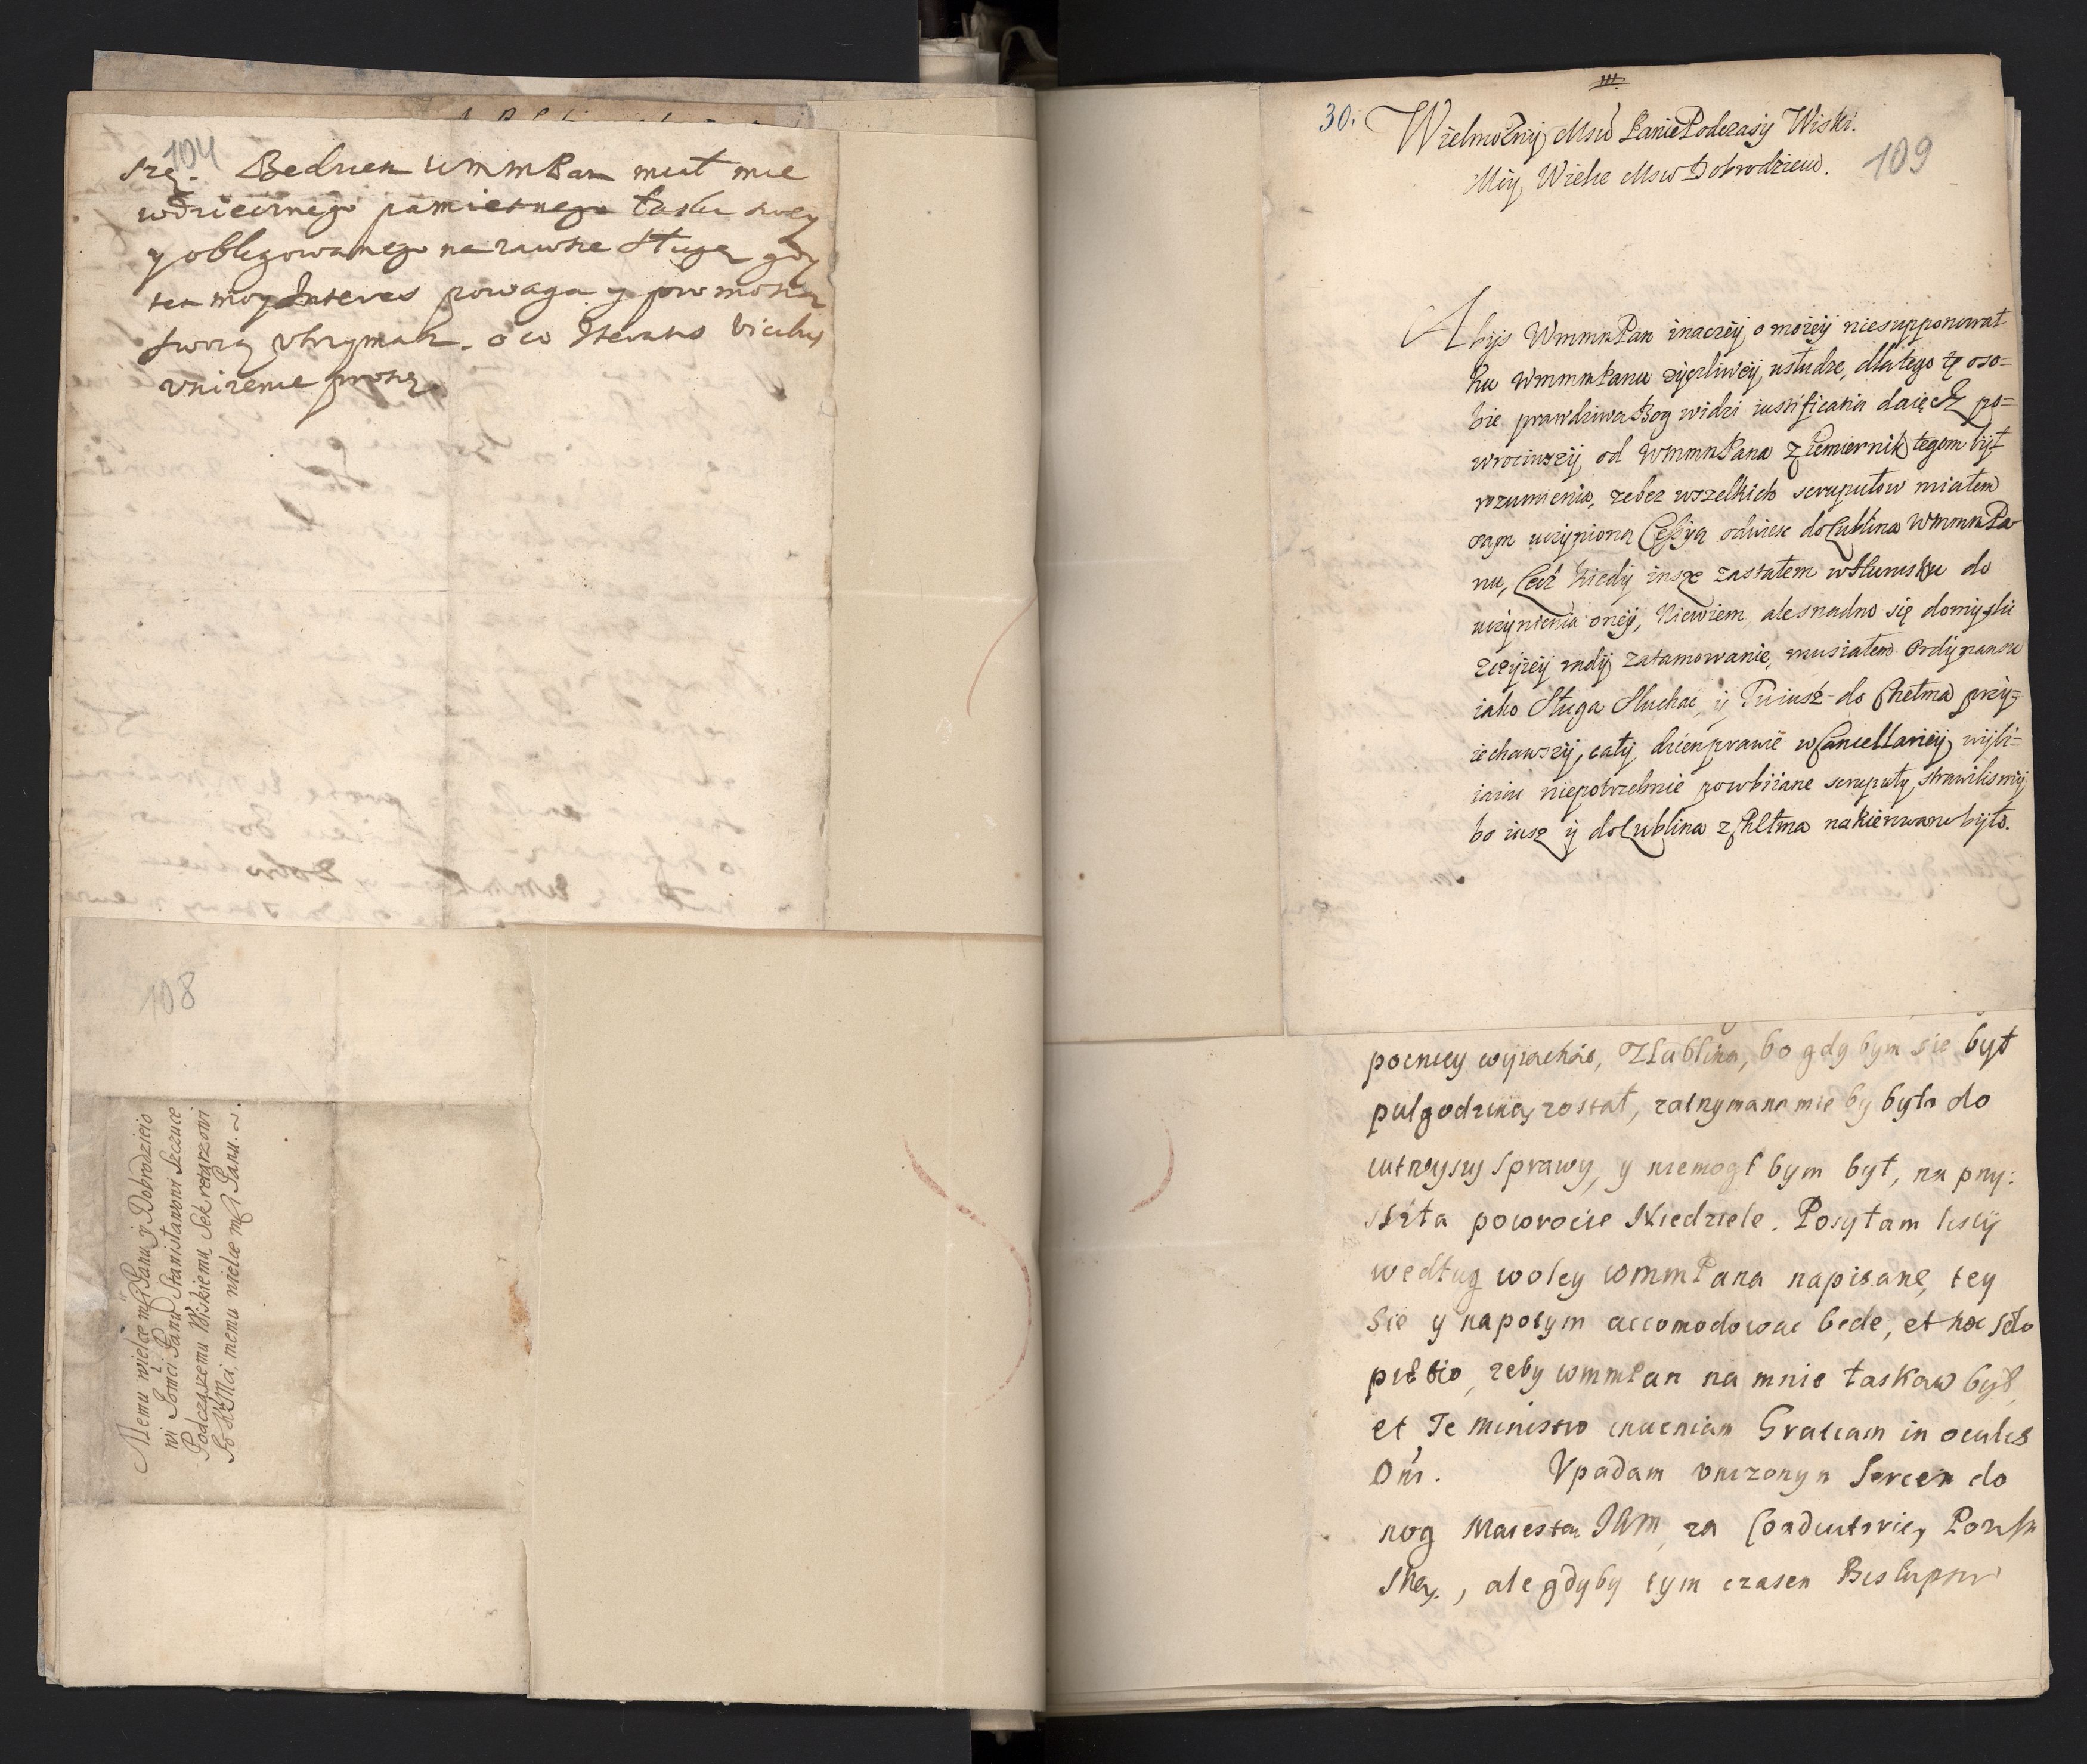 104
szę. Bedziesz WMMPan miał mie
wdziecznego pamietnego łaski swey
y obligowanego na zawsze Sługę gdy
ten moy Interes powagą y promotią
swoią vtrzymasz. o co iteratis vicibus
vnizenie proszę.
108
Memu wielce mśći Panu y Dobrodzieio
wi Jomći Panu Stanisławowi Szczuce
Podczaszemu Wiskiemu Sekretarzowi
Jo KMći, memu wielce mśći Panu.
III.
30.
Wielmożny Msci Panie Podczaszy Wiski.
Mój Wielce Msci Dobrodzieiu.
109
Abyś WmmmPan inaczey o moiey niesupponował
ku WmmmPanu zyczliwey usłudze, dlatego tę oso=
bie prawdziwą Bog widzi iustificatią daię Iz po=
wrociwszy od WmmmPana z Remiernik tegom był
rozumienia, zebez wszelkich scrupułow miałem
uczyniona Cessyą odwiesc do Lublina WmmmPa
nu, Lecz kiedy insze zastałem do
uczynienia oney, Niewiem ale snadno się domyslic
zczyiey rady zatamowanie, musiałem Ordynansu
iako Sługa słuchac, y Tuiusz do Chełma przy=
iechawszy, cały dzien prawie w Cancellariey wybi=
iaiac niepotrzebnie powbiiane scrupuły strawilismy
bo iusz y do Lublina z Chełma nakierowano było.
pocnicy wyiachac, Z Lublina, bo gdybym sie był
pulgodziny został, zatrzymano mie by było do
iutrzyszy sprawy, y niemogł bym był, na przy:
szła powrocie Niedziele. Posyłam listy
według woley WmmPana napisane, tey
sie y napotym accomodowac bede, et hoc solo
zeby WmmPan na mnie łaskaw był
et Te ministro inueniam Gratiam in oculis
Dni. Vpadam vnizonym Sercem do
nog Maiestatu JKM, za Coadiutorię
skey, ale gdyby tym czasem